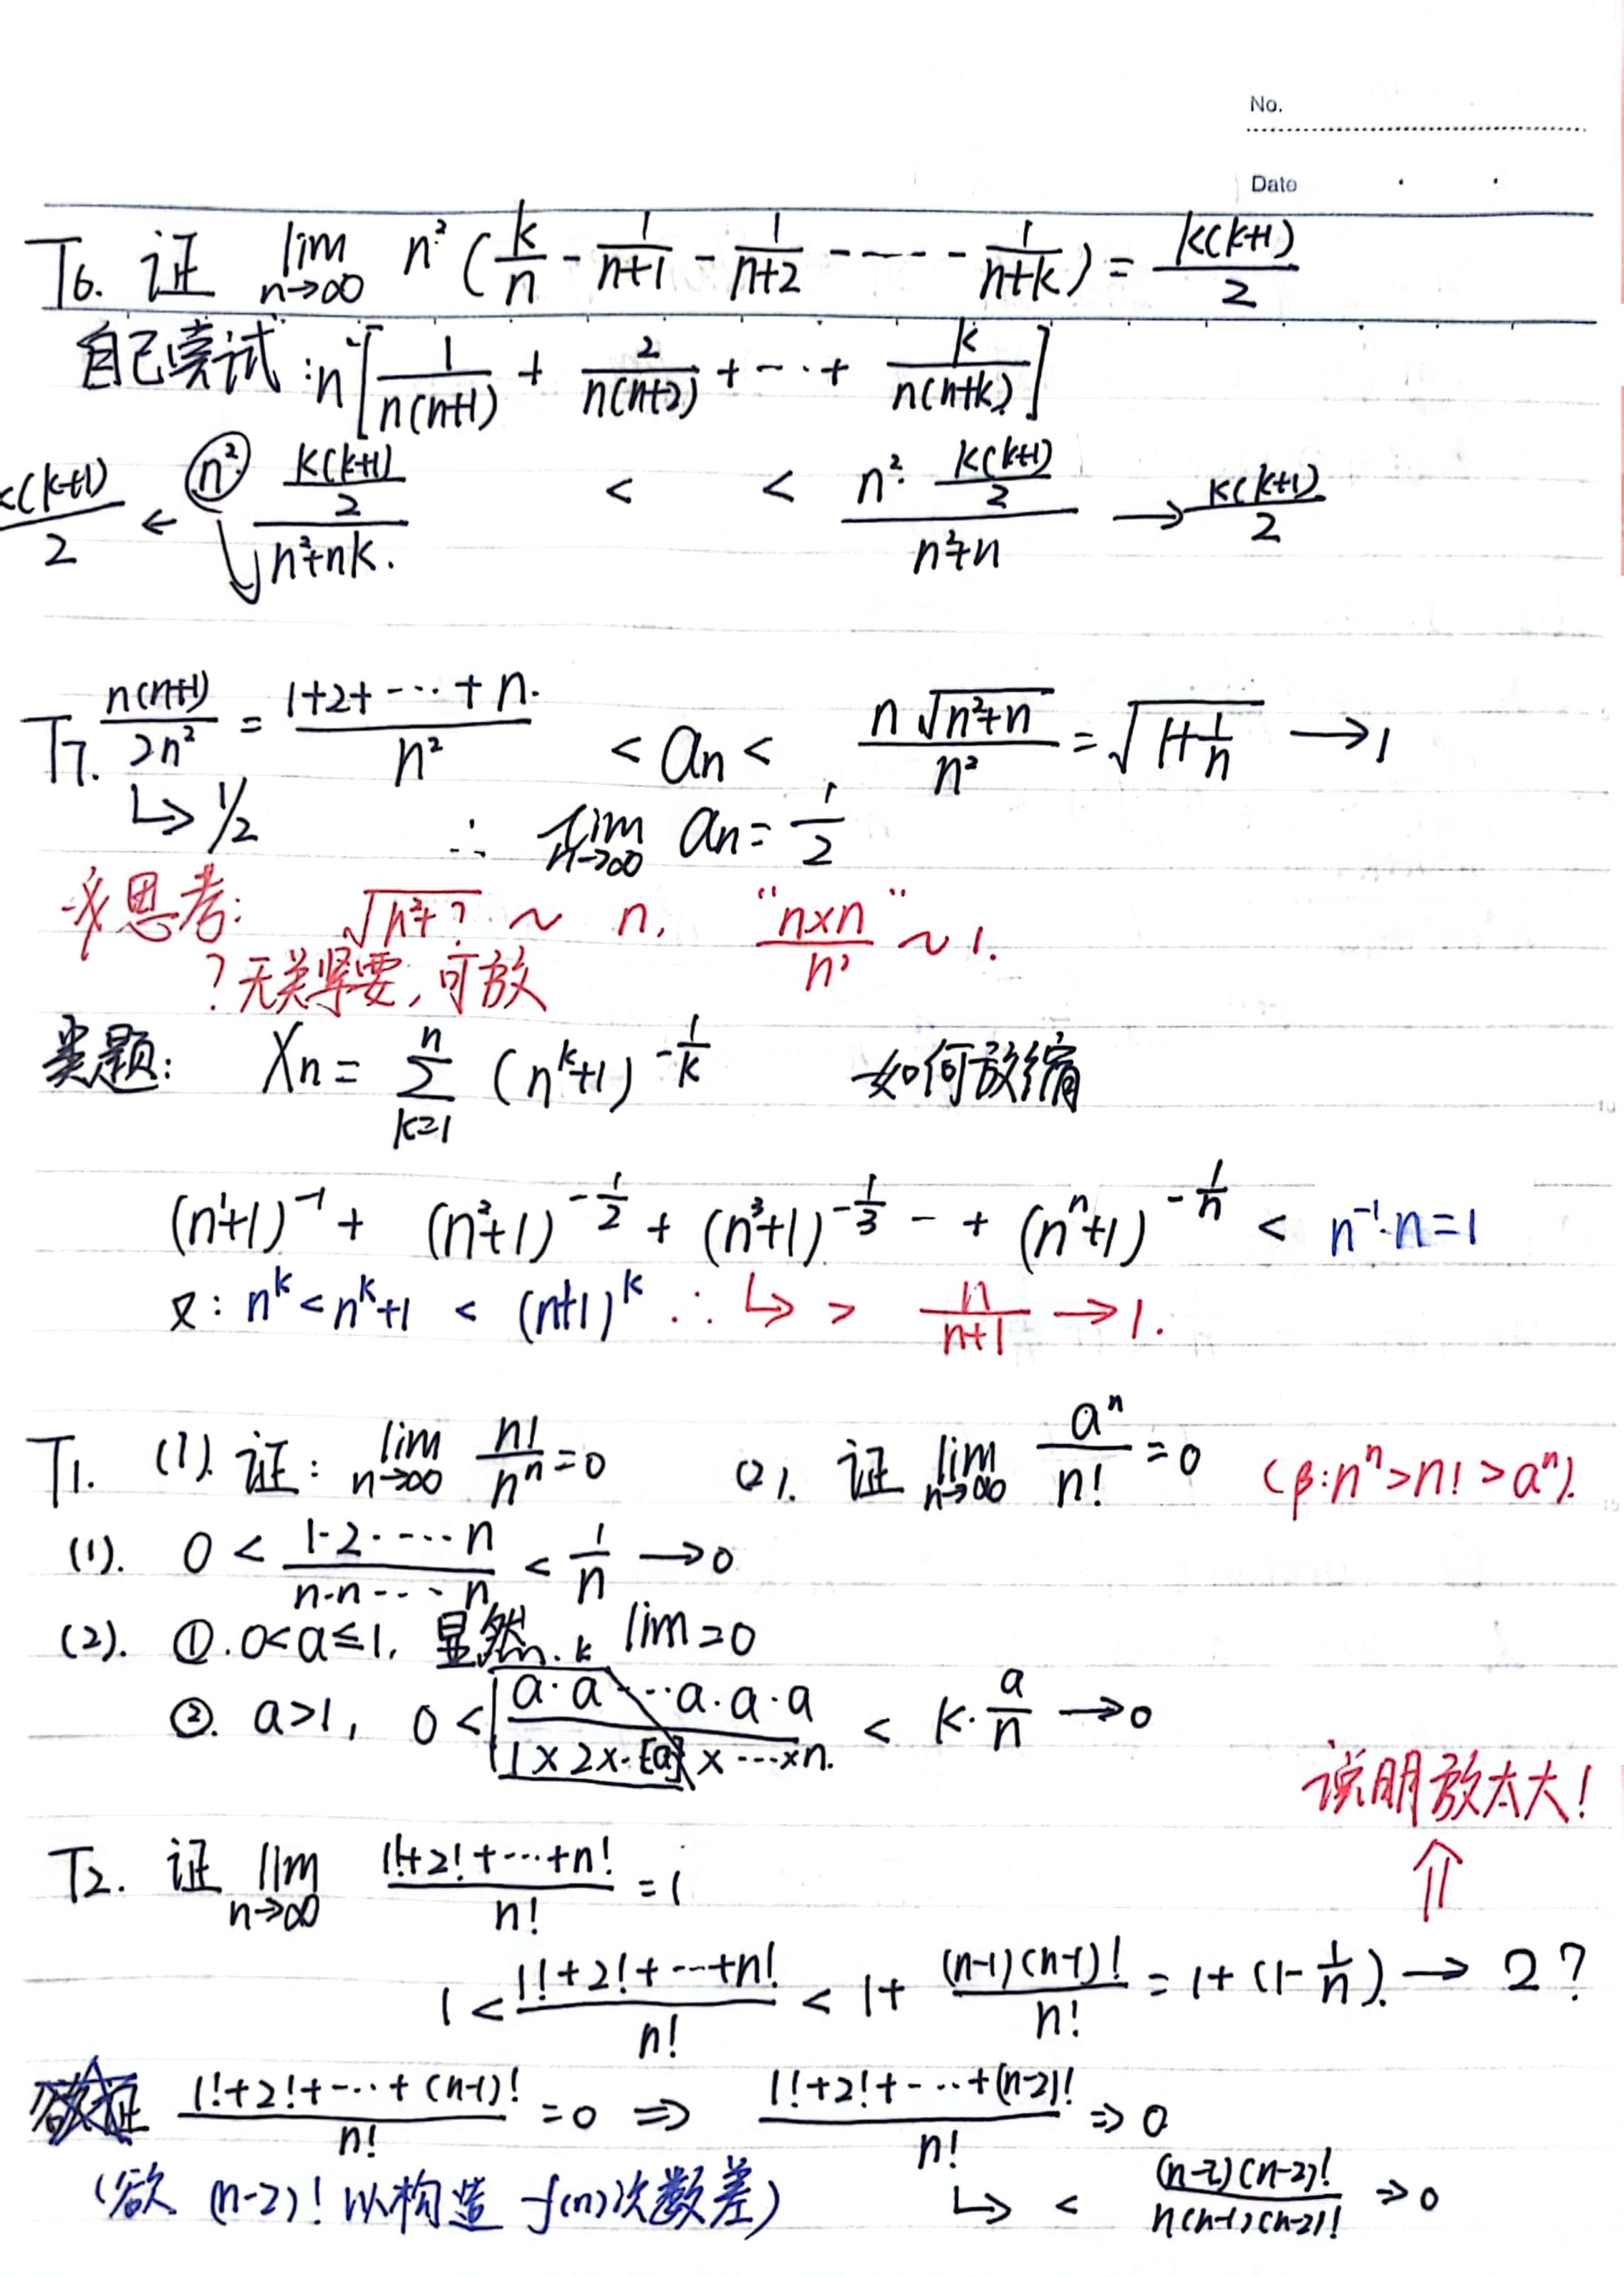 No.
Date
T6. 证 lim n→∞ n² (k/n - 1/(n+1) - 1/(n+2) - ---- - 1/(n+k)) = k(k+1)/2
自己尝试: n² [1/(n(n+1)) + 2/(n(n+2)) + -·· + k/(n(n+k))]
k(k+1)/2 ← n² · (k(k+1)/2)/(n²+nk) < < (n² · k(k+1)/2)/(n²+n) → k(k+1)/2
T7. n(n+1)/2n² = (1+2+···+n)/n² < an < n√(n²+n)/n² = √(1+1/n) → 1
↳ 1/2 ∴ lim n→∞ an = 1/2
思考: √(n²+?) ~ n, "n×n"/n² ~ 1.
? 无关紧要, 可放
类题: Xn = Σ k=1 n (n^k+1)^(-1/k) 如何放缩
(n¹+1)^-1 + (n²+1)^(-1/2) + (n³+1)^(-1/3) - + (n^n+1)^(-1/n) < n^-1·n=1
又: n^k < n^k+1 < (n+1)^k ∴ ↳ > n/(n+1) → 1.
T1. (1). 证: lim n→∞ n!/n^n = 0 (2). 证 lim n→∞ a^n/n! = 0 (β: n^n > n! > a^n).
(1). 0 < 1·2·-···n/n·n-··-n < 1/n → 0
(2). ①. 0<a≤1, 显然 lim=0
k
②. a>1, 0 < a·a···a·a·a/1×2×·[a]×···×n. < k·a/n → 0
说明放太大!
⇑
T2. 证 lim n→∞ (1!+2!+···+n!)/n! = 1
1 < (1!+2!+···+n!)/n! < 1+ (n-1)(n-1)!/n! = 1+(1-1/n). → 2?
欲证 (1!+2!+-··+(n-1)!)/n! = 0 ⇒ (1!+2!+-··+(n-2)!)/n! ⇒ 0
(欲 (n-2)! 以构造 f(n)次数差) ↳ < (n-2)(n-2)!/n(n-1)(n-2)! ⇒ 0